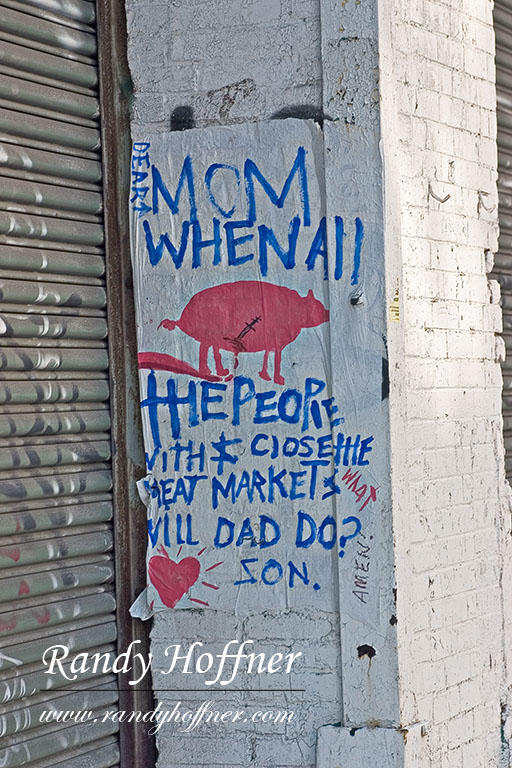 DEAR
MOM
WHEN All
THE PEOPlE
WITH $ ClOSE THE
MEAT MARKETS
WHAT
WILL DAD DO?
SON.
AMEN!
Randy Hoffner
www.randyhoffner.com